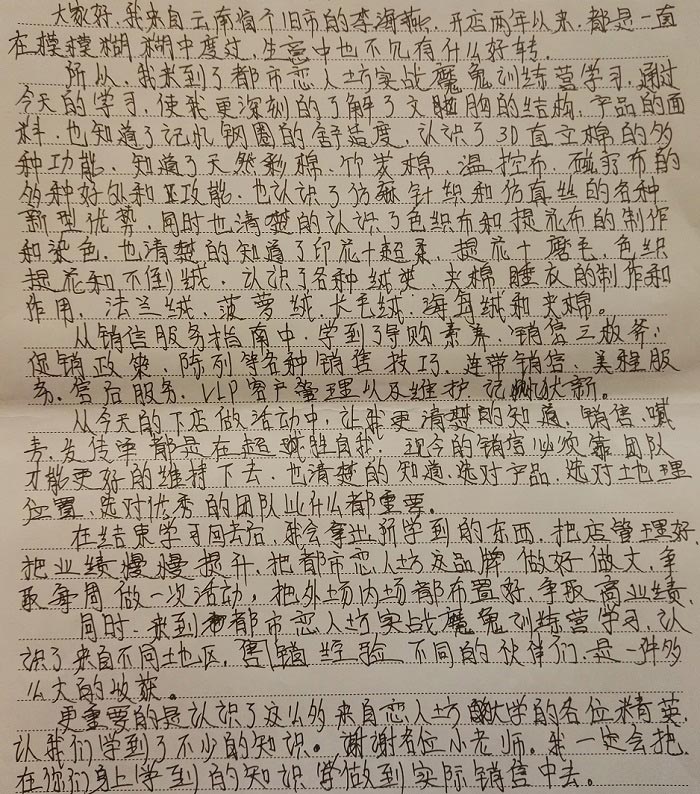 大家好，我来自云南省个旧市的李海燕，开店两年以来，都是一直
在模模糊糊中度过，生意中也不见有什么好转。
所以，我来到了都市恋人坊实战魔鬼训练营学习，通过
今天的学习，使我更深刻的了解了文胸的结构，产品的面
料，也知道了记忆钢圈的舒适度，认识了3D直立棉的多
种功能，知道了天然彩棉、竹炭棉、温控布、磁疗布的
多种好处和功能，也认识了仿麻针织和仿真丝的各种
新型优势，同时也清楚的认识了色织布和提花布的制作
和染色，也清楚的知道了印花+超柔，提花+磨毛，色织
提花和不倒绒，认识了各种绒类，夹棉睡衣的制作和
作用，法兰绒，菠萝绒，长毛绒，海岛绒和夹棉。
从销售服务指南中，学到了导购素养，销售三板斧，
促销政策，陈列等各种销售技巧，连带销售，美程服
务，售后服务，VLP客户管理以及维护
从今天的下店做活动中，让我更清楚的知道，销售，喊
麦，发传单都是在超越胜自我，现今的销售必须靠团队
才能更好的维持下去，也清楚的知道，选对产品，选对地理
位置，选对优秀的团队比什么都重要。
在结束学习回去后，我会拿出所学到的东西，把店管理好，
把业绩慢慢提升，把都市恋人坊这品牌做好做大，争
取每周做一次活动，把外场内场都布置好，争取高业绩，
同时，来到都市恋人坊实战魔鬼训练营学习，认
识了来自不同地区，售销经验不同的伙伴们，是一件多
么大的收获。
更重要的是认识了这么多来自恋人坊大学的各位精英，
让我们学到了不少的知识。谢谢各位小老师。我一定会把
在你们身上学到的知识学做到实际销售中去。